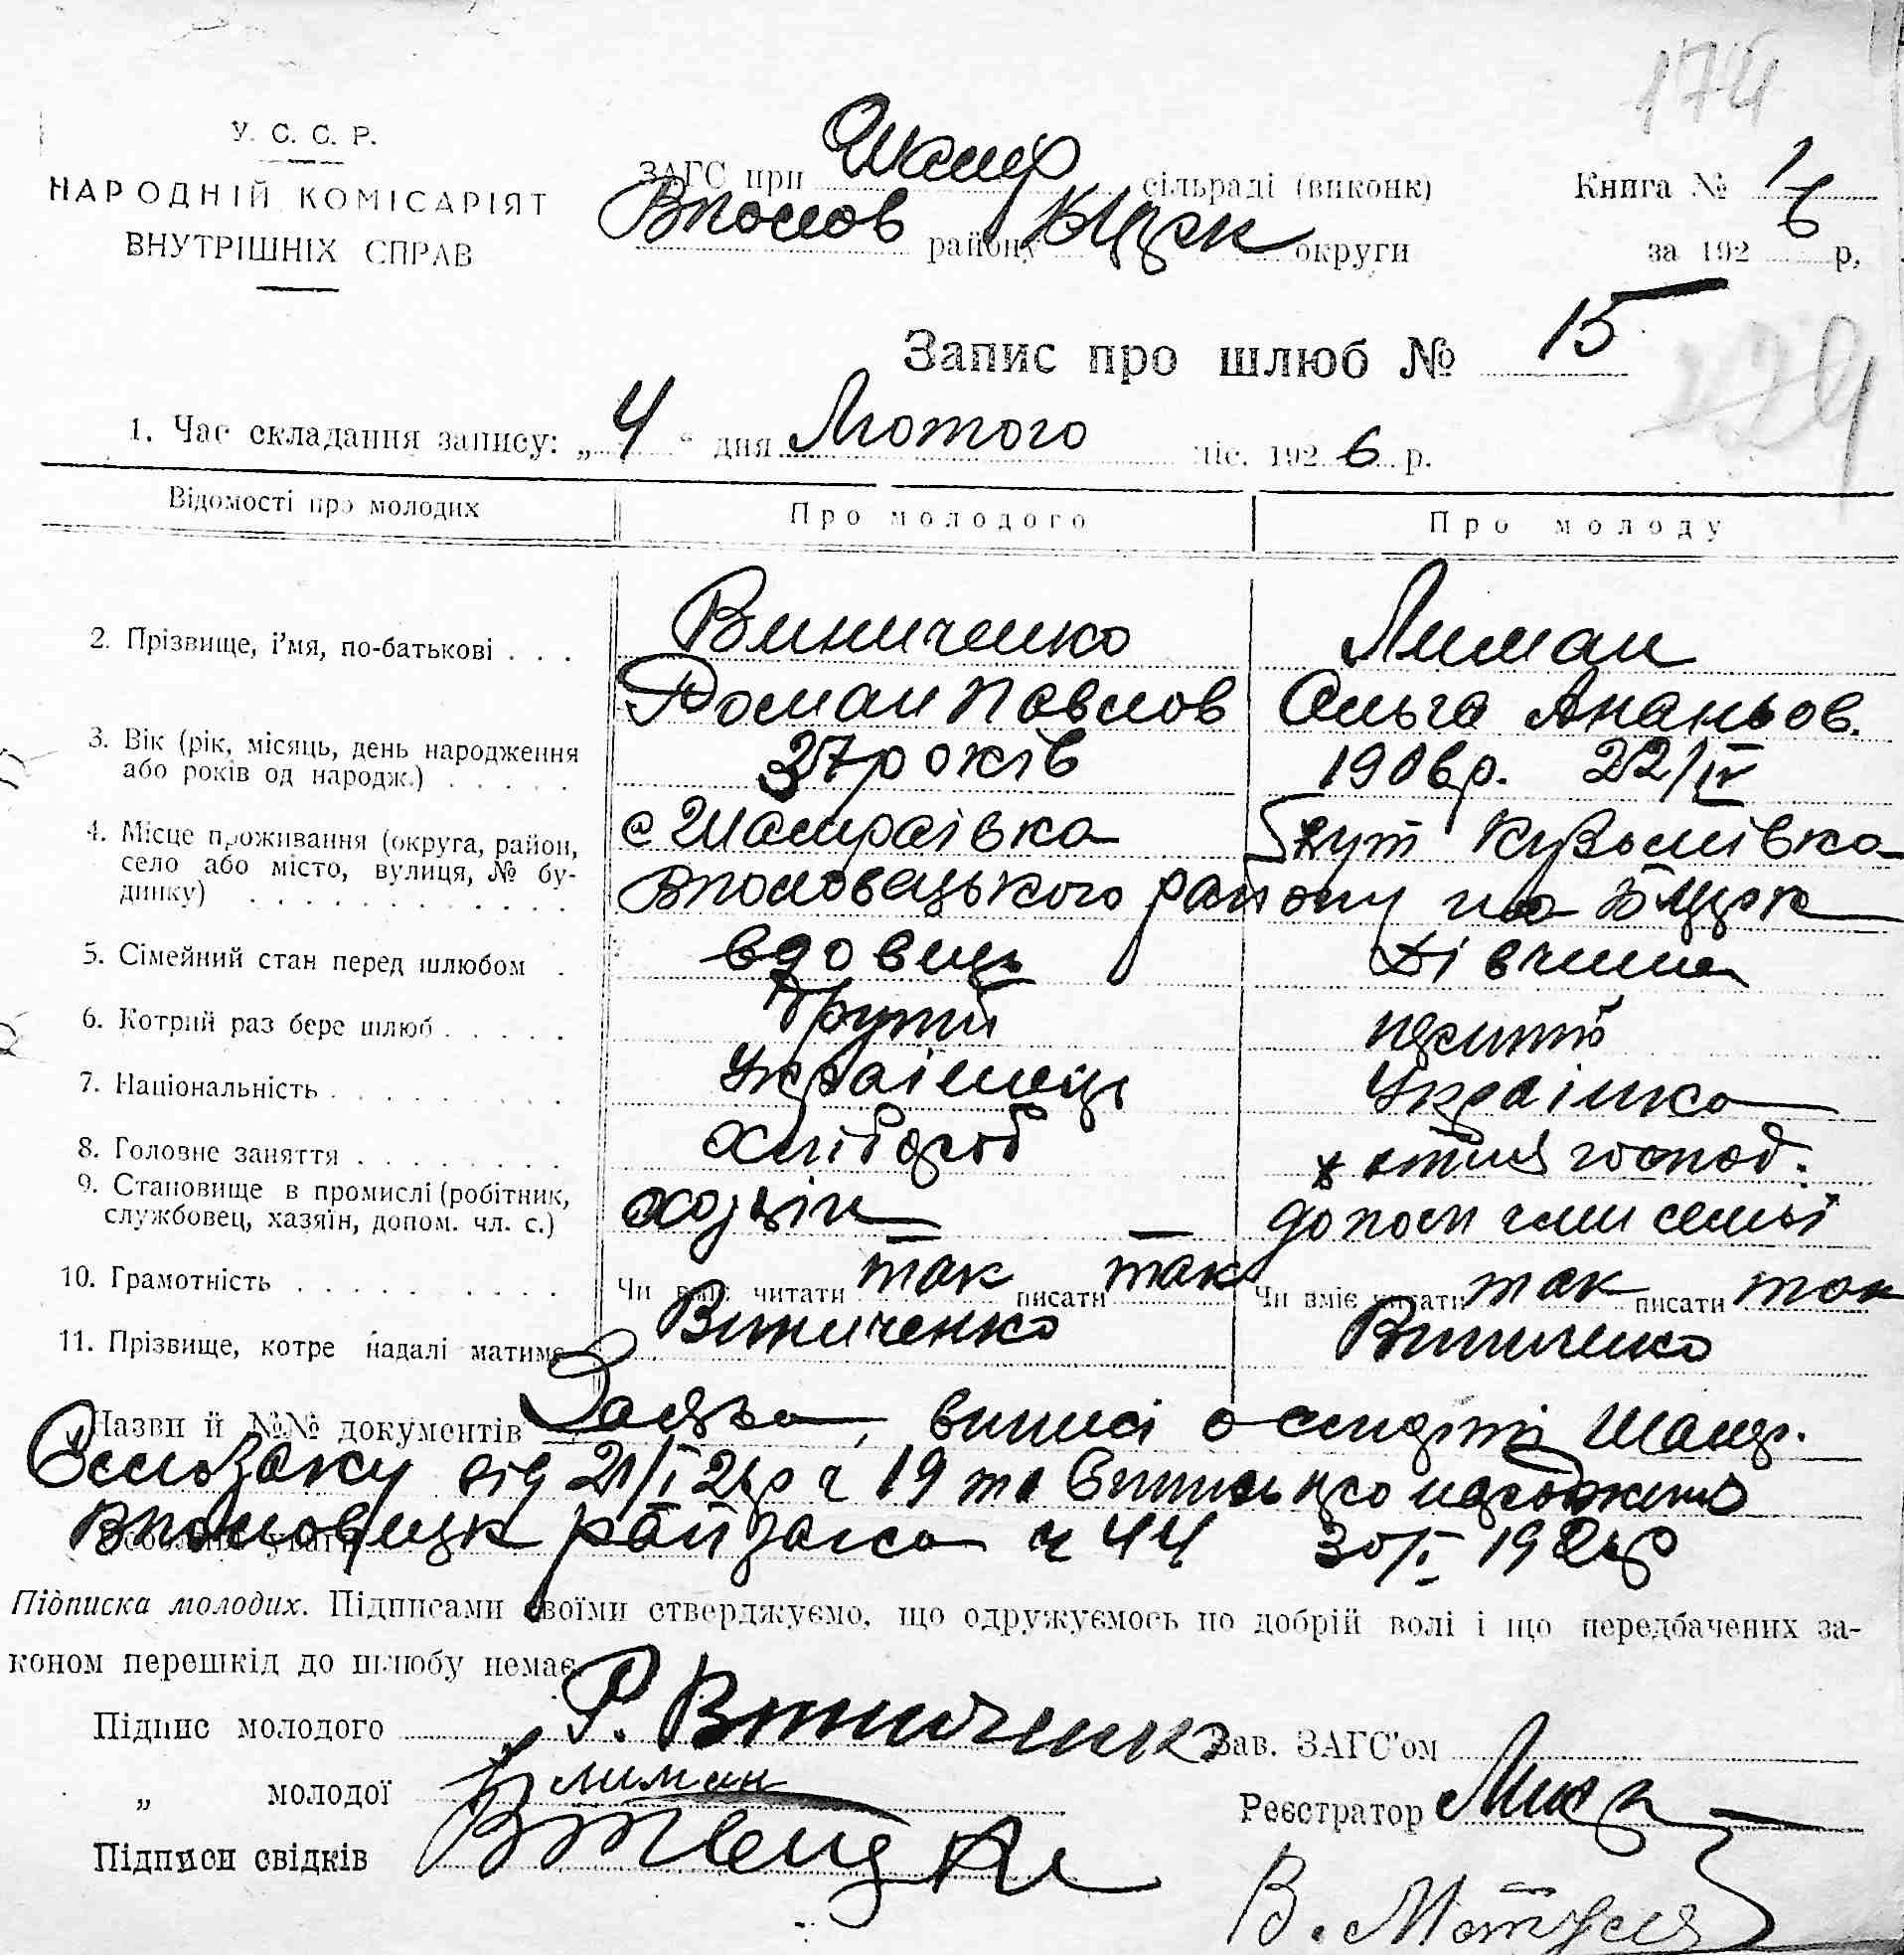 174
У. С. С. Р.
НАРОДНІЙ КОМІСАРІЯТ
ВНУТРІШНІХ СПРАВ
ЗАГС при Шамр сільраді (виконк)
Вполов району БЦрк округи
Книга № 1
за 192 6 р,
Запис про шлюб № 15
1. Час складання запису: „ 4 “ дня Лютого міс. 192 6 р.
Відомості про молодих Про молодого Про молоду
2. Прізвище, і'мя, по-батькові . . . Виниченко Лиман
Роман Павлов Ольга Ананьов.
3. Вік (рік, місяць, день народження або років од народж.) 27 років 1906 р. 22/IV
4. Місце проживання (округа, район, село або місто, вулиця, № будинку) с Шамраївка хут Кузьмівка
Вполовецького району на БЦрк
5. Сімейний стан перед шлюбом . вдовець дівчина
6. Котрий раз бере шлюб другий перший
7. Національність Українець Українка
8. Головне заняття хлібороб господ.
9. Становище в промислі (робітник, службовец, хазяїн, допом. чл. с.) хозяїн допом член семьї
10. Грамотність Чи вміє читати так писати так Чи вміє читати так писати так
11. Прізвище, котре надалі матиме Виниченко Виниченко
Назви й №№ документів Заява, виписі о смерті Шамр.
від 21/I 26 р ч 19 та Випись про народження
Вполовецьк райзагса ч 44 30/I 1926 р
Особливі уваги
Підписка молодих. Підписами своїми стверджуємо, що одружуємось по добрій волі і що передбачених за-
коном перешкід до шлюбу немає.
Підпис молодого Р. Виниченко Зав. ЗАГС'ом
„ молодої Лиман Реєстратор
Підписи свідків
В.